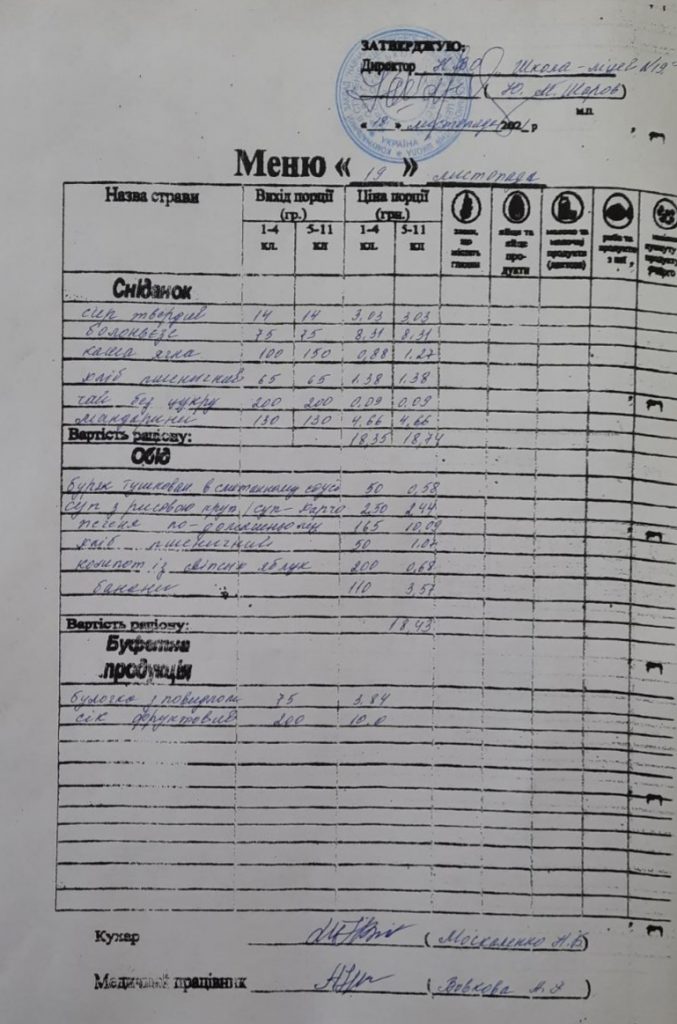 ЗАТВЕРДЖУЮ:
Директор Н.В.О. Школа-ліцей №19
(Ю. М. Шаров)
м.п.
« 19 » листопада 2021 р
Меню « 19 » листопада
Назва страви Вихід порції (гр.) Ціна порції (грн.)
1-4 кл. 5-11 кл 1-4 кл. 5-11 кл
злаки, що містять глютен яйця та яйце продукти молоко та молочні продукти (лактоза) риба та продукти з неї
Сніданок
сир твердий 14 14 3,03 3,03
болоньєзе 75 75 8,31 8,31
каша ячна 100 150 0,88 1.27
хліб пшеничний 65 65 1.38 1.38
чай без цукру 200 200 0,09 0,09
мандарини 130 130 4,66 4,66
Вартість раціону: 18,35 18,74
Обід
буряк тушкован в сметанному соусі 50 0,58
суп з рисовою круп/суп-харчо 250 2.44
печеня по-домашньому 165 10,09
хліб пшеничний 50 1.07
компот із свіжих яблук 200 0,68
банани 110 3,57
Вартість раціону: 18,43
Буфетна продукція
булочка з повидлом 75 3,84
сік фруктовий 200 10.0
Кухар (Москаленко Н.В)
Медичний працівник (Вовкова А.)